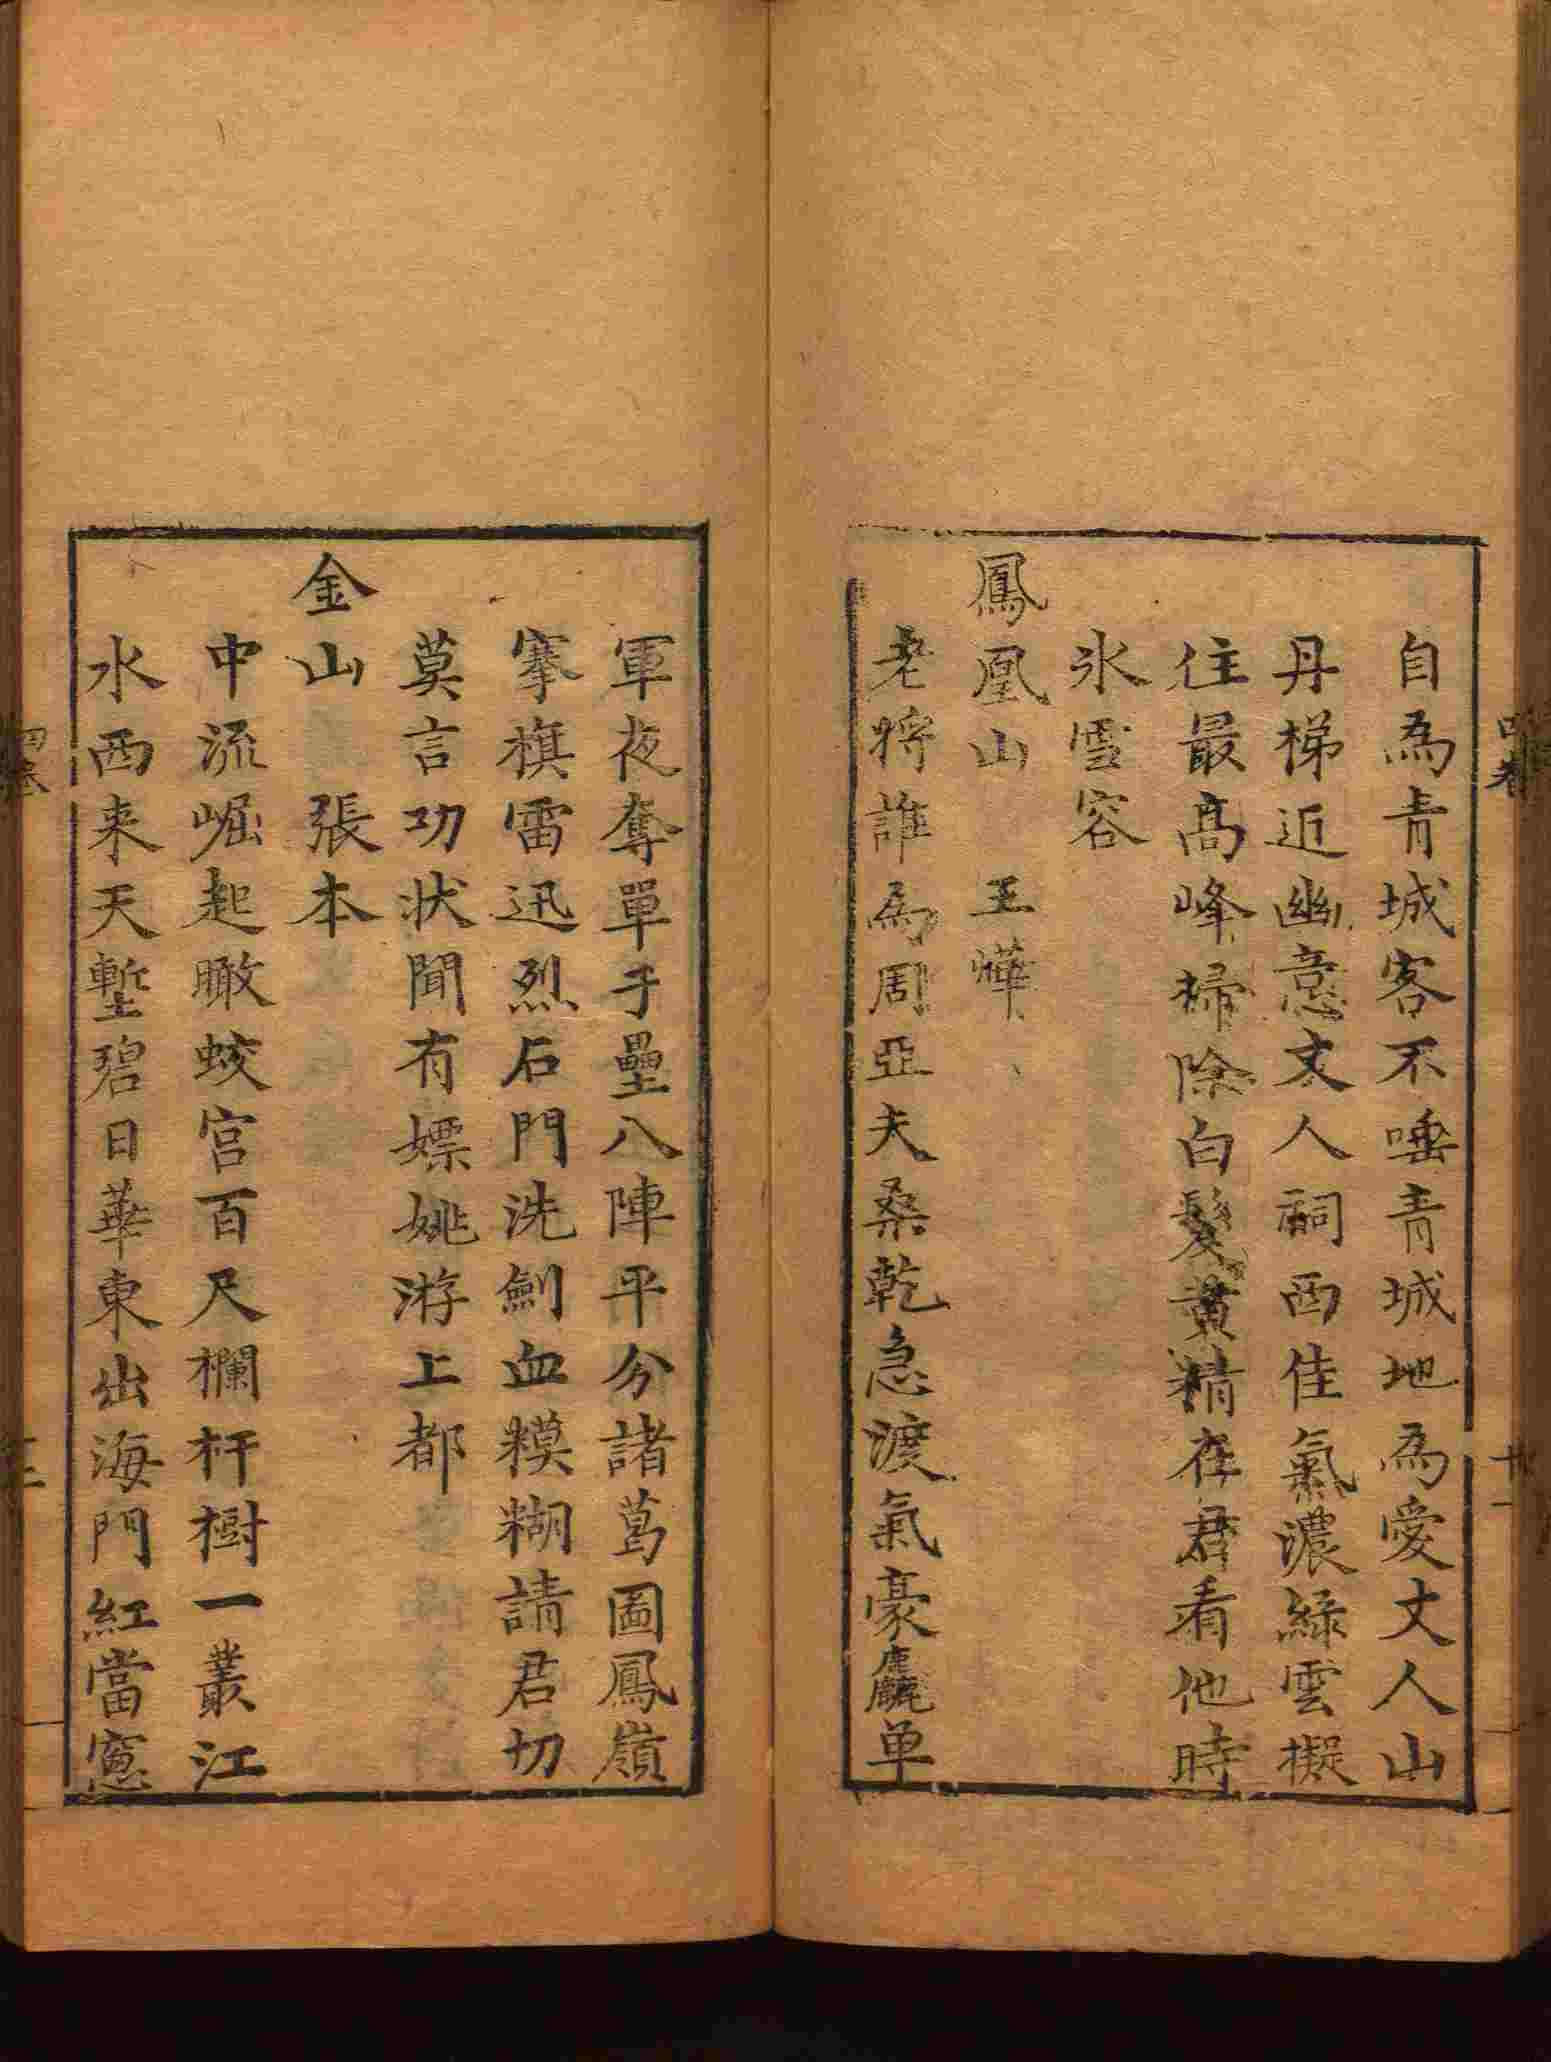 自為青城客不唾青城地為愛丈人山
丹梯近幽意丈人祠西佳氣濃綠雲擬
住最高峰掃除白髮黃精在君看他時
氷雲容
鳳凰山 王
老將誰為周亞夫桑乾急渡氣豪麤單
軍夜奪單于壘八陣平分諸葛圖鳳嶺
搴旗雷迅烈石門洗劍血糢糊請君切
莫言功状聞有嫖姚游上都
金山 張本
中流崛起瞰蛟宮百尺欄杆樹一叢江
水西来天塹碧日華東出海門紅當窻
四卷